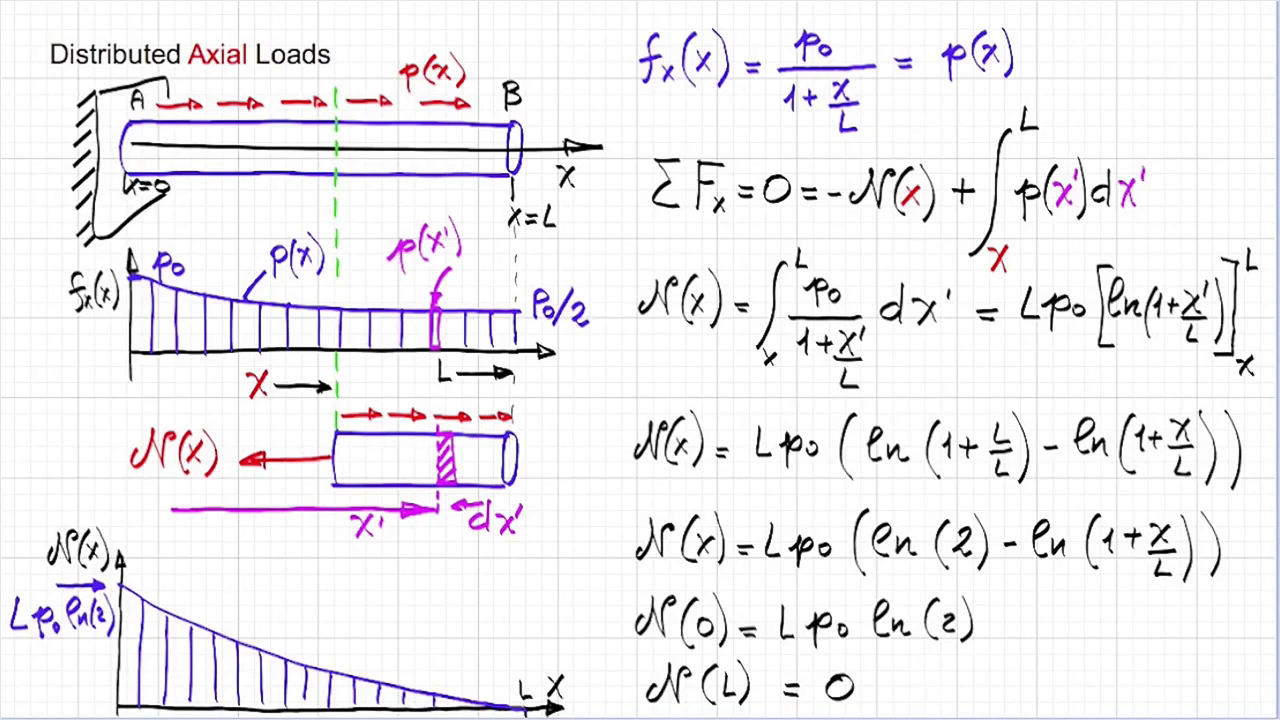 Distributed Axial Loads
p(x)
A
B
x=0
x
x=L
fₓ(x)
p₀
p(x)
p(x')
p₀/2
x
L
N(x)
x'
dx'
N(x)
L p₀ ln(2)
L x
fₓ(x) = p₀/(1+x/L) = p(x)
ΣFₓ = 0 = -N(x) + ∫ₓᴸ p(x')dx'
N(x) = ∫ₓᴸ p₀/(1+x'/L) dx' = Lp₀[ln(1+x'/L)]ₓᴸ
N(x) = Lp₀(ln(1+L/L) - ln(1+x/L))
N(x) = Lp₀(ln(2) - ln(1+x/L))
N(0) = Lp₀ ln(2)
N(L) = 0